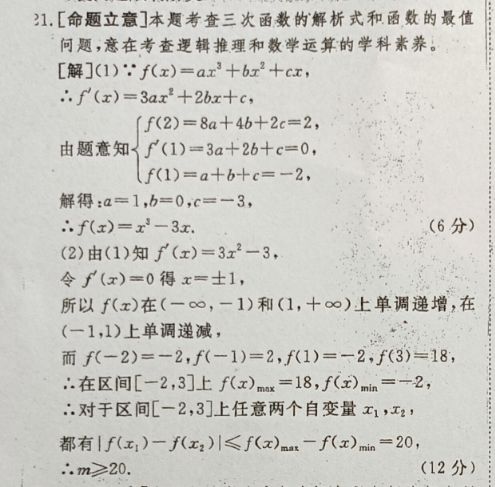 21.[命题立意]本题考查三次函数的解析式和函数的最值
问题,意在考查逻辑推理和数学运算的学科素养。
[解](1)∵f(x)=ax³+bx²+cx,
∴f′(x)=3ax²+2bx+c,
由题意知{f(2)=8a+4b+2c=2,
f′(1)=3a+2b+c=0,
f(1)=a+b+c=-2,
解得:a=1,b=0,c=-3,
∴f(x)=x³-3x. (6分)
(2)由(1)知f′(x)=3x²-3,
令f′(x)=0得x=±1,
所以f(x)在(-∞,-1)和(1,+∞)上单调递增,在
(-1,1)上单调递减,
而f(-2)=-2,f(-1)=2,f(1)=-2,f(3)=18,
∴在区间[-2,3]上f(x)max=18,f(x)min=-2,
∴对于区间[-2,3]上任意两个自变量x₁,x₂,
都有|f(x₁)-f(x₂)|≤f(x)max-f(x)min=20,
∴m≥20. (12分)